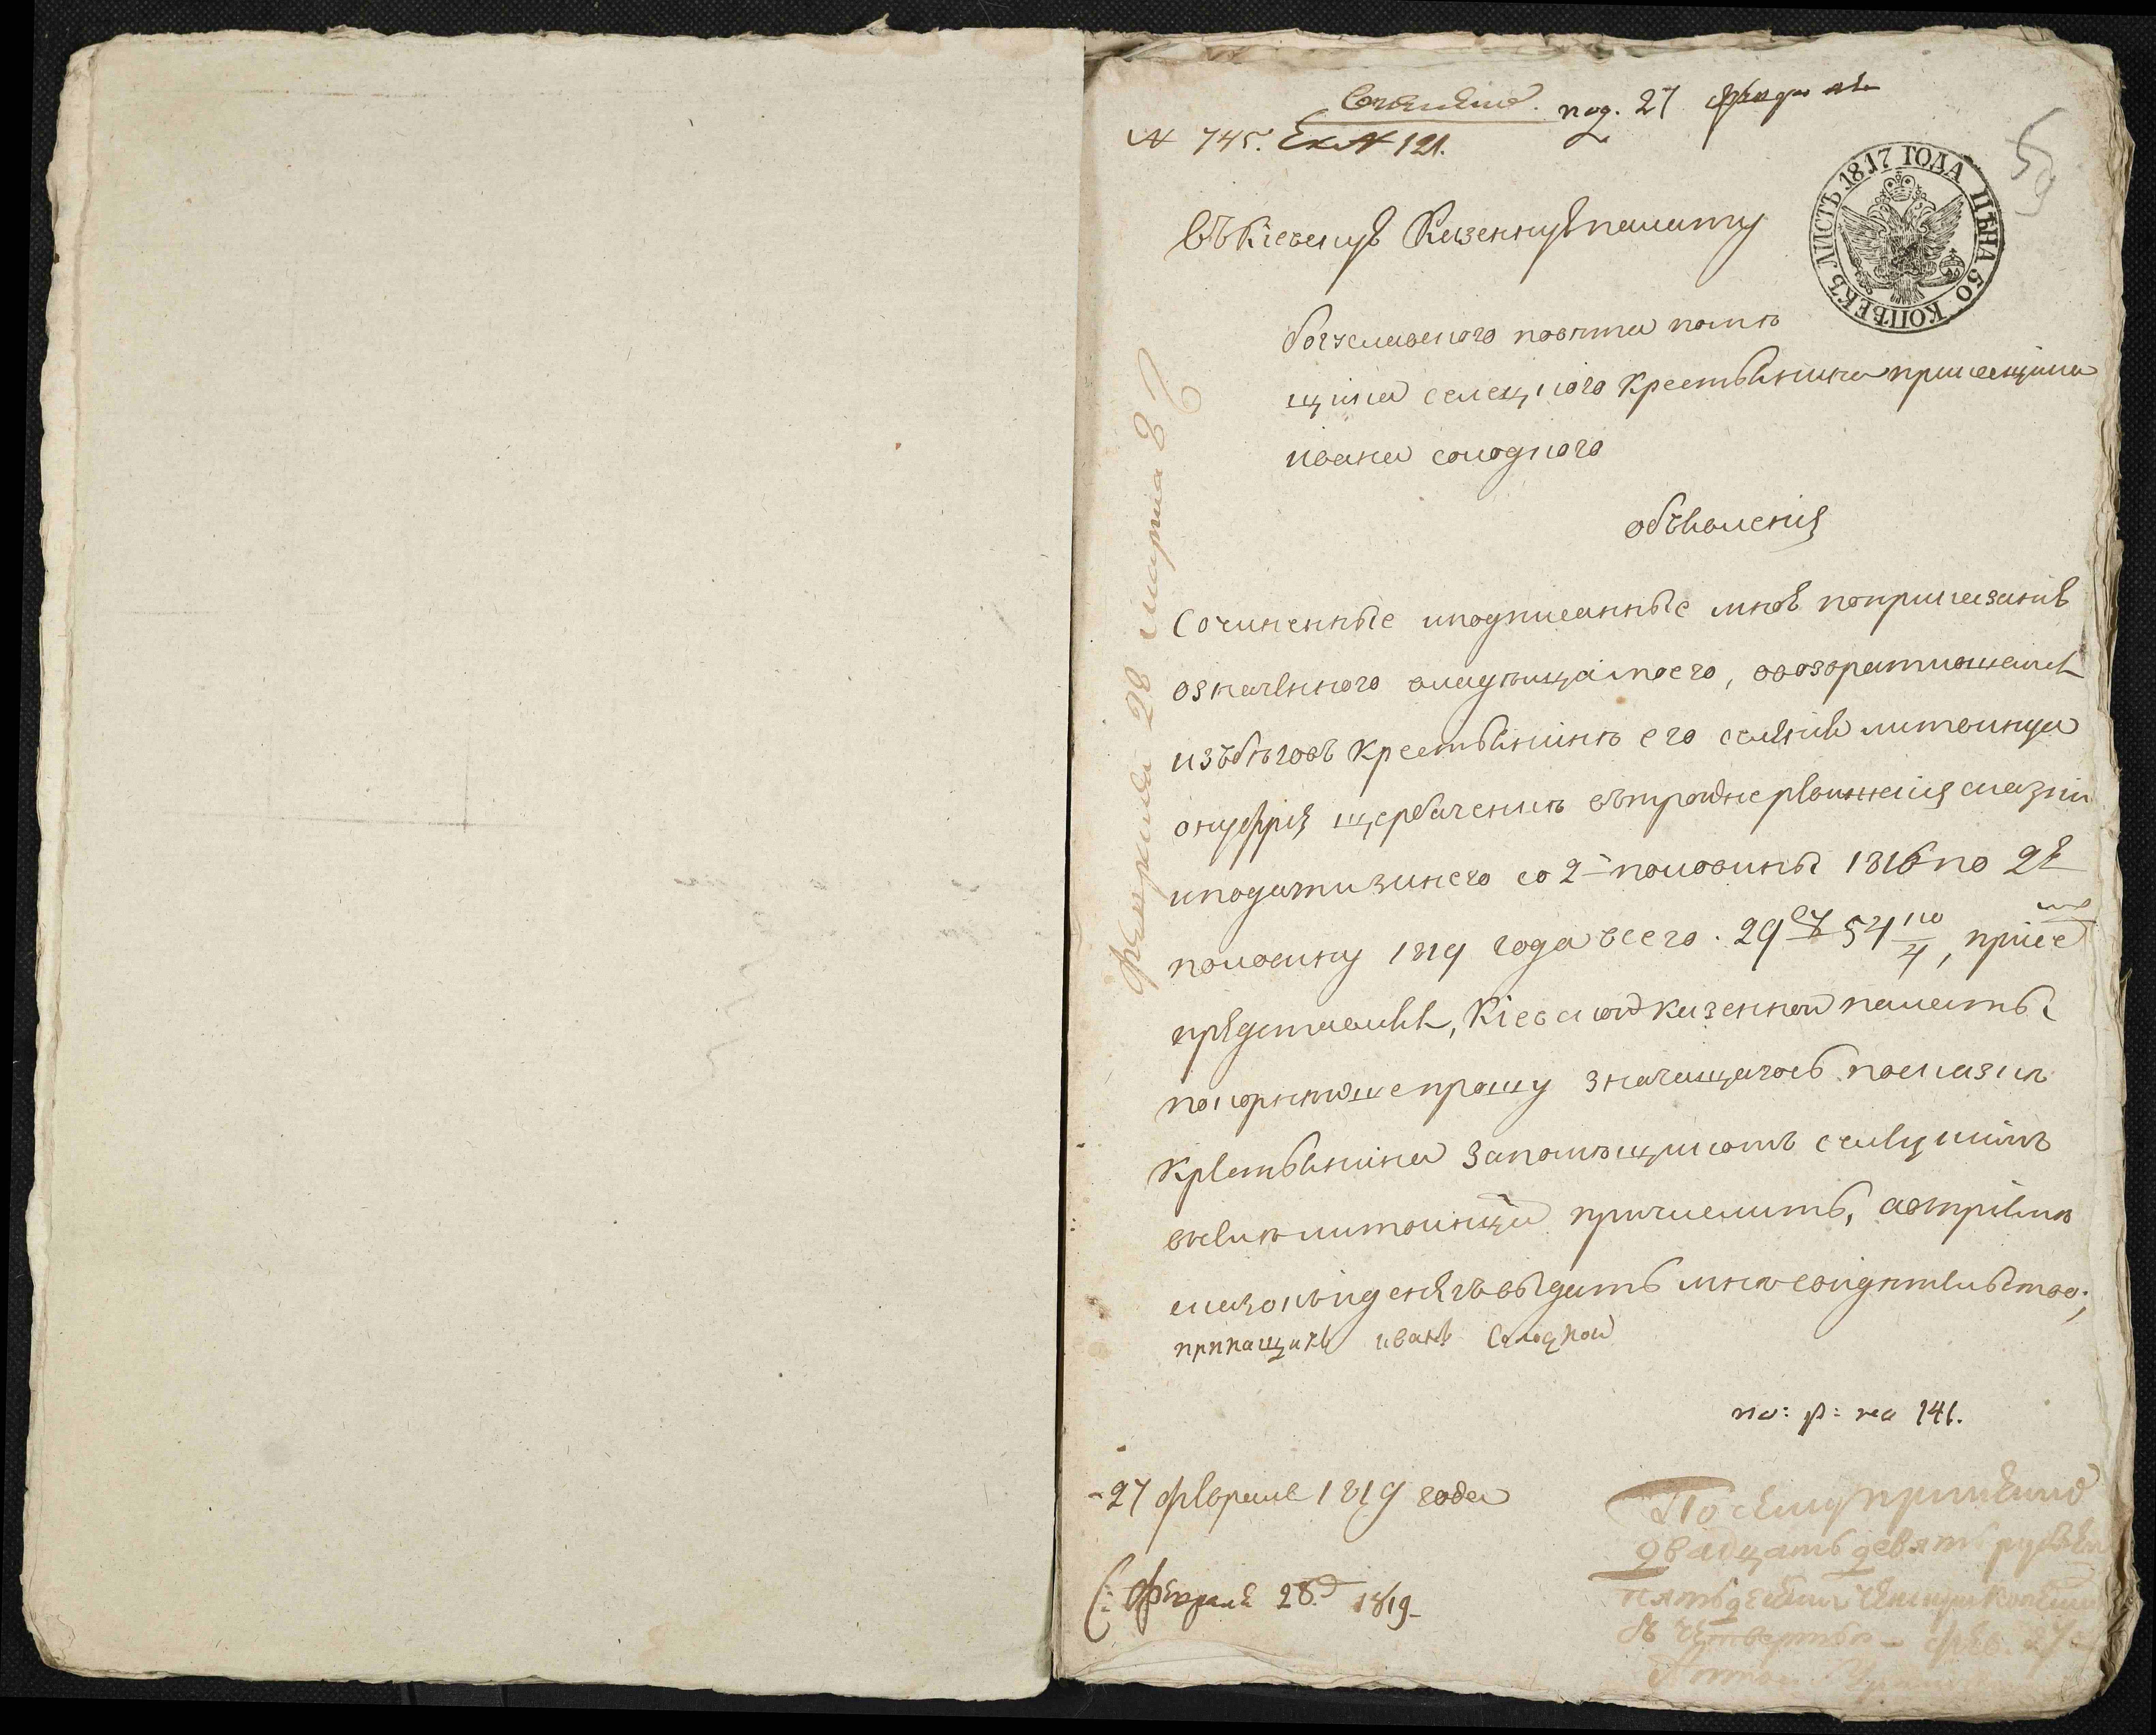 под. 27 февраля
№ 745. Ек № 121.
59
ЛИСТЪ 1817 ГОДА ЦѢНА 50 КОПѢЕКЪ
Въ Кіевскую Казенную палату
богуславского повѣта помѣ
щика селецкого крестьянина прикащика
ивана солодкого
объявления
Сочиненные и подписанные мною по приказанію
означенного владѣльца моего, о возвратившемся
изъ бѣговъ крестьянинѣ его селения литвинца
онуфрия щербаченкѣ ревижския сказки
и подати за него со 2й половины 1816 по 2ю
половину 1819 года всего 29 р 54 1/4 ко, при семъ
представляя, Киевской казенной палаты
покорнѣйше прошу значащагось по сказкѣ
крестьянина за помѣщикомъ селецкимъ
в селѣ литвинцы причислить, а в приемѣ
сказокъ и денегъ выдать мнѣ свидѣтельство;
прикащикъ иванъ Солодкой
по: р: на 141.
27 февраля 1819 года
Февраля 28 марта 8
По сему принято
двадцать девять рублей
пятьдесят четыри копейки
съ четвертью фев. 27
Февраля 28го 1819